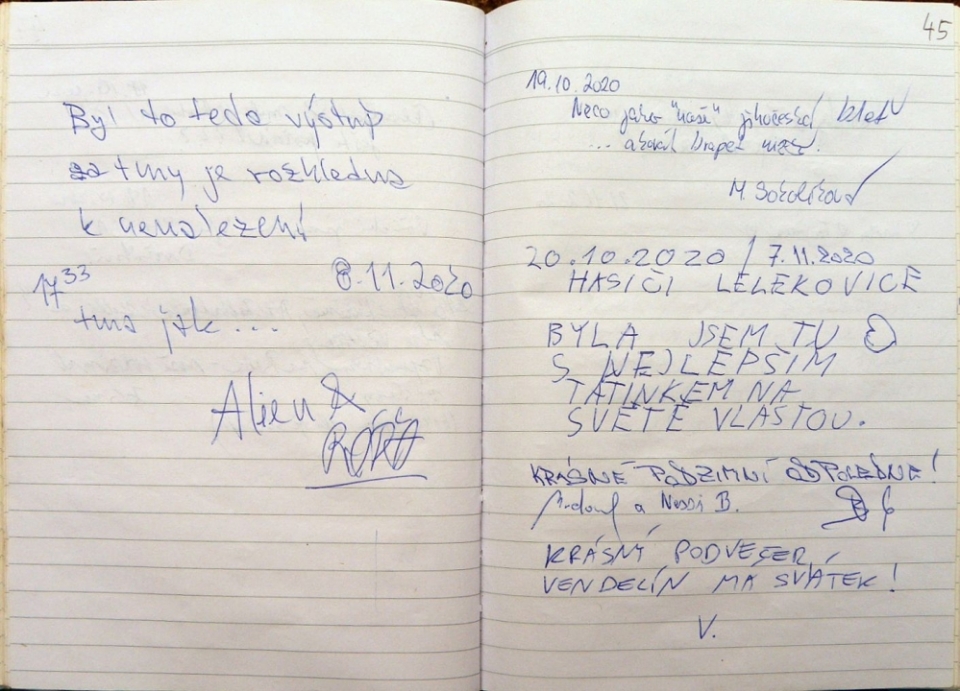 Byl to teda výstup
za tmy je rozhledna
k nenalezení
17 33 8.11.2020
tma jak...
Alien &
45
19.10.2020
Něco jako "naše" jihočeská Kleť
...
M. Sokolíková
20.10.2020 / 7.11.2020
HASIČI LELEKOVICE
BYLA JSEM TU
S NEJLEPŠÍM
TATÍNKEM NA
SVĚTĚ VLASTOU.
KRÁSNÉ PODZIMNÍ ODPOLEDNE!
a Nessi B.
KRÁSNÝ PODVEČER
VENDELÍN MÁ SVÁTEK!
V.